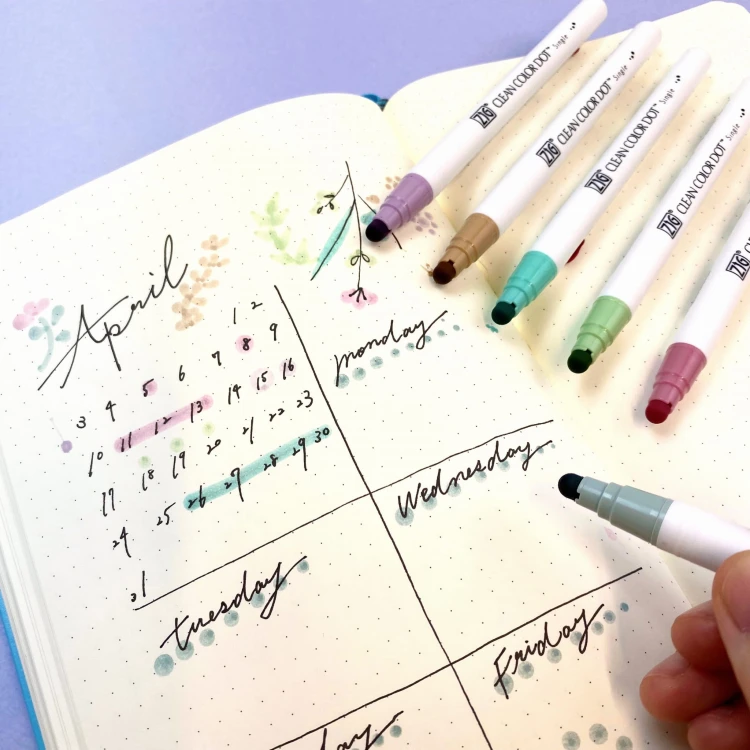 April
1 2
3 4 5 6 7 8 9
10 11 12 13 14 15 16
17 18 19 20 21 22 23
24 25 26 27 28 29 30
31
monday
Wednesday
Tuesday
Friday
day
ZIG® CLEAN COLOR DOT™ Single
ZIG® CLEAN COLOR DOT™ Single
ZIG® CLEAN COLOR DOT™ Single
ZIG® CLEAN COLOR DOT™ Single
ZIG